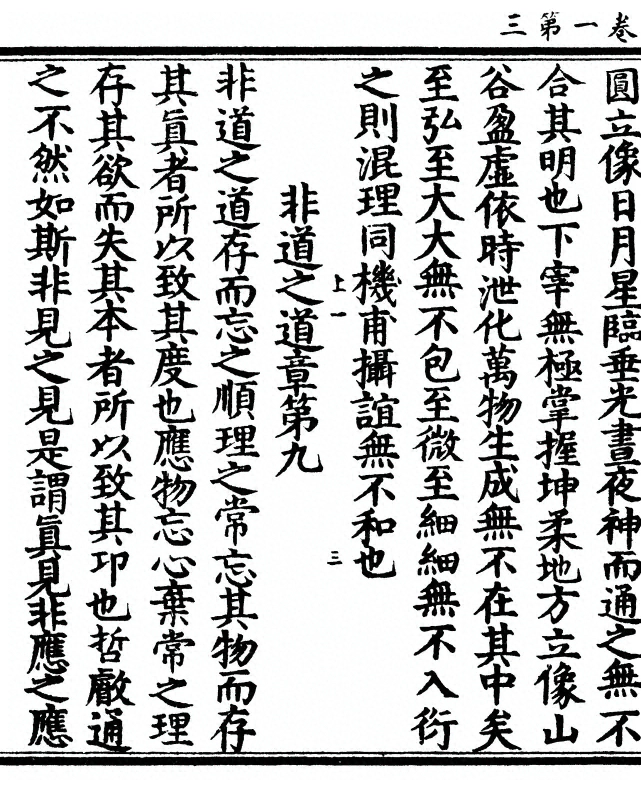 卷一第三
圓立像日月星臨垂光晝夜神而通之無不
合其明也下宰無極掌握坤柔地方立像山
谷盈虛依時泄化萬物生成無不在其中矣
至弘至大大無不包至微至細細無不入衍
之則混理同機甫攝誼無不和也
上一
三
非道之道章第九
非道之道存而忘之順理之常忘其物而存
其眞者所以致其度也應物忘心棄常之理
存其欲而失其本者所以致其卬也哲㕡通
之不然如斯非見之見是謂眞見非應之應